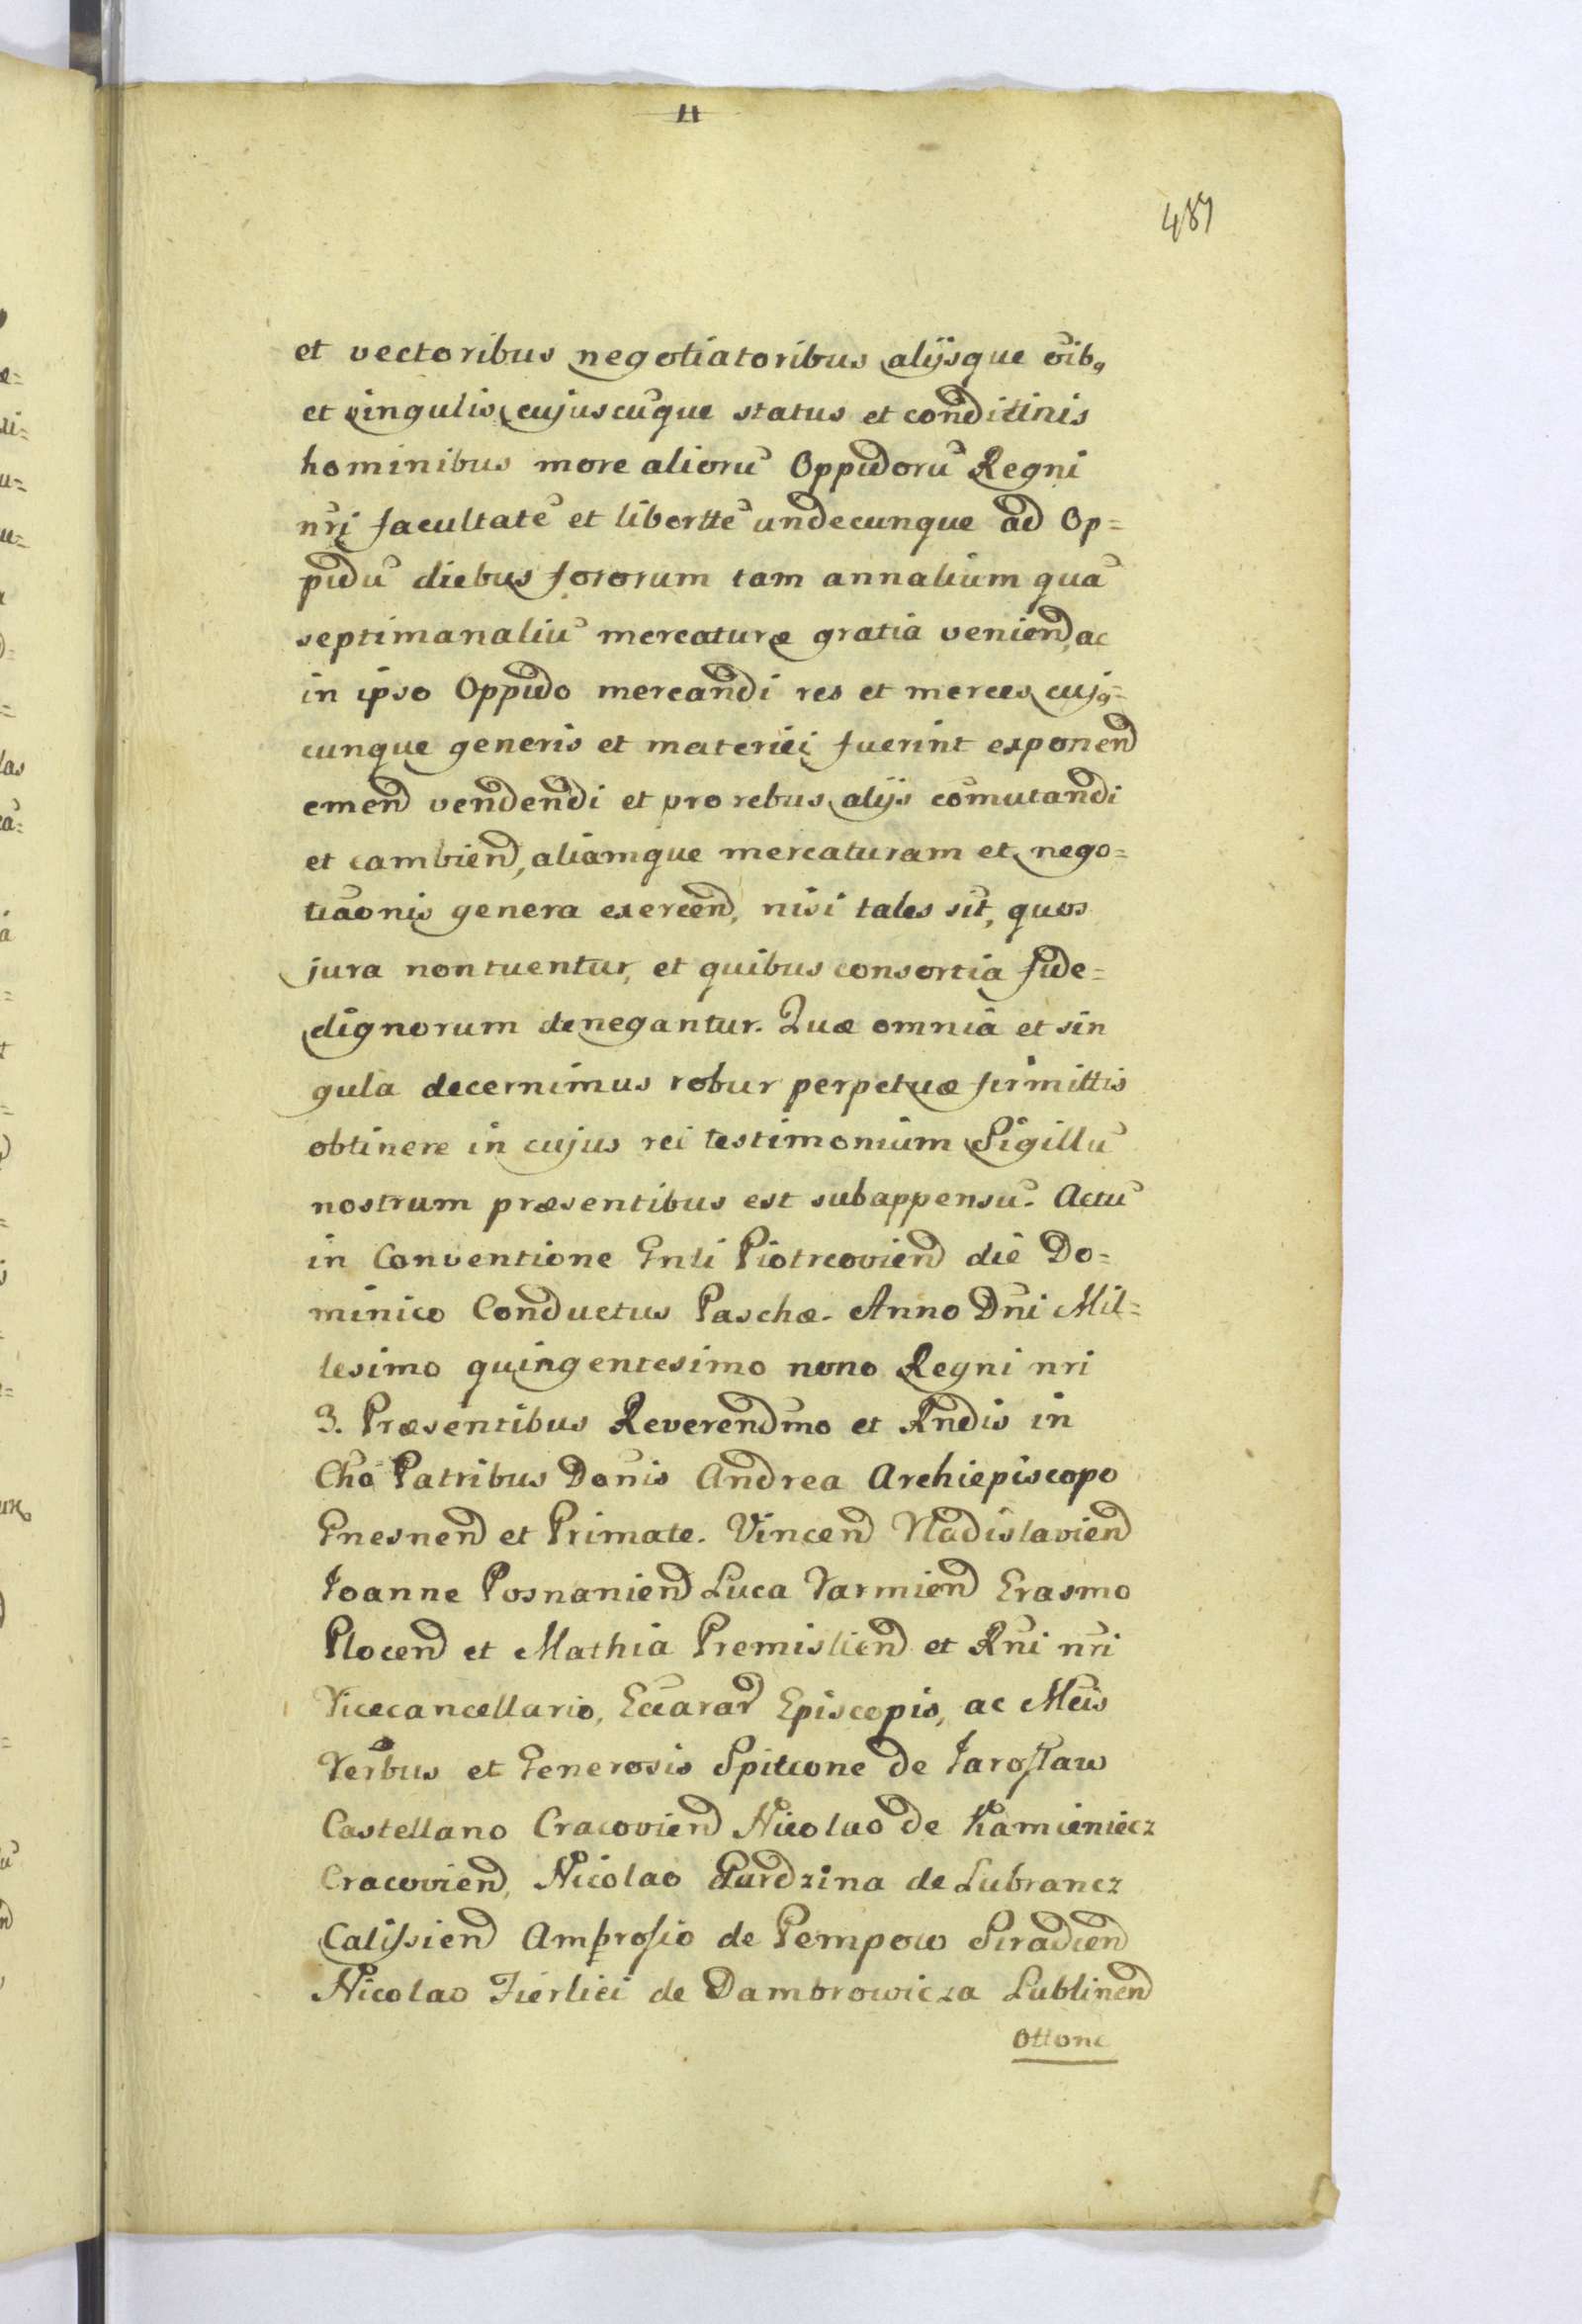 11
487
et vectoribus negotiatoribus alijsque oib9
et singulis cujuscuque status et conditinis
hominibus more alioru Oppidoru Regni
nri facultate et libertte undecunque ad Op=
pidu diebus fororum tam annalium qua
septimanaliu mercaturæ gratia veniend, ac
in ipso Oppido mercandi res et merces cuj9=
cunque generis et materiei fuerint exponend
emend vendendi et pro rebus alijs comutandi
et cambiend, aliamque mercaturam et nego=
tiaonis genera exercend, nisi tales sit, quos
jura non tuentur, et quibus consortia fide=
dignorum denegantur. Quæ omnia et sin
gula decernimus robur perpetuæ firmittis
obtinere in cujus rei testimonium Sigillu
nostrum præsentibus est subappensu. Actu
in Conventione Gnli Piotrcoviend die Do=
minico Conductus Paschæ. Anno Dni Mil=
lesimo quingentesimo nono Regni nri
3. Præsentibus Reverendmo et Rndis in
Cho Patribus Donis Andrea Archiepiscopo
Gnesnend et Primate. Vincend Vladislaviend
Ioanne Posnaniend Luca Varmiend Erasmo
Plocend et Mathia Premisliend et Rni nri
Vicecancellario, Eccarar Episcopis, ac Mcis
Verbus et Generosis Spitcone de Jaroslaw
Castellano Cracoviend Nicolao de Kamieniecz
Cracoviend, Nicolao Gardzina de Lubrancz
Calissiend Ambrosio de Pempow Siradiend
Nicolao Fierliei de Dambrowicza Lublinend
Ottone